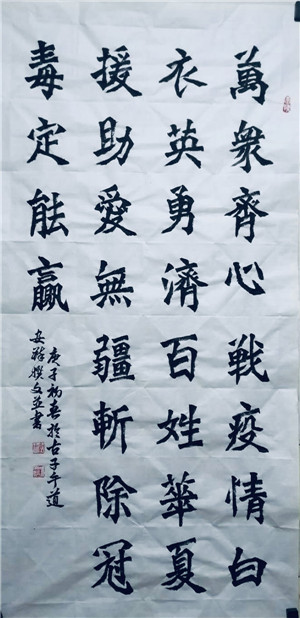 萬眾齊心戰疫情白
衣英勇濟百姓華夏
援助愛無疆斬除冠
毒定能贏
庚子初春於古子午道
安祥撰文並書